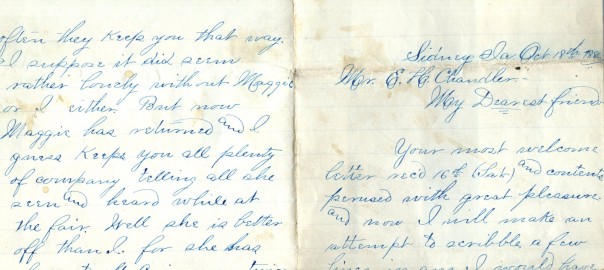 often they keep you that way.
I suppose it did seem
rather lonely without Maggie
or I either. But now
Maggie has returned and I
guess keeps you all plenty
of company telling all she
seen and heard while at
the fair. Well she is better
off than I. for she has
Sidney Ia. Oct 18th
Mr. E. H. Chandler.
My Dearest friend
Your most welcome
letter recd 16th (Sat) and contents
perused with great pleasure
and now I will make an
attempt to scribble a few
I would have